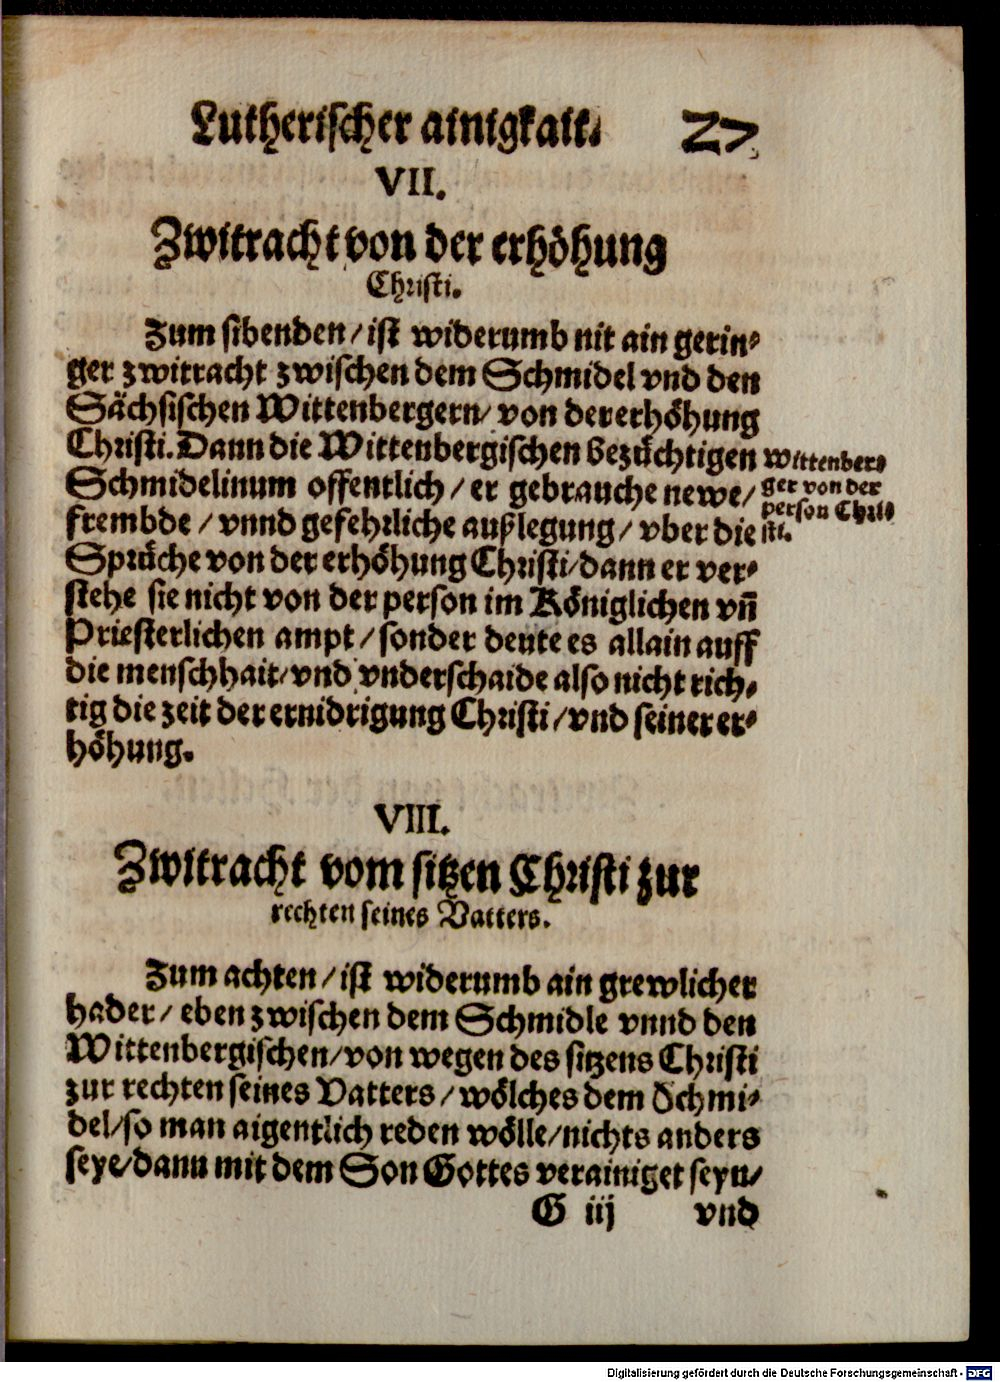 Lutherischer ainigkait. 27
VII.
Zwitracht von der erhöhung
Christi.
Zum sibenden / ist widerumb nit ain gerin⸗
ger zwitracht zwischen dem Schmidel vnd den
Sächsischen Wittenbergern / von der erhöhung
Christi. Dann die Wittenbergischen bezüchtigen
Schmidelinum offentlich / er gebrauche newe /
frembde / vnnd gefehrliche außlegung / vber die
Sprüche von der erhöhung Christi / dann er ver⸗
stehe sie nicht von der person im Königlichen vñ
Priesterlichen ampt / sonder deute es allain auff
die menschhait / vnd vnderschaide also nicht rich⸗
tig die zeit der ernidrigung Christi / vnd seiner er⸗
höhung.
Wittenber⸗
ger von der
person Chri⸗
sti.
VIII.
Zwitracht vom sitzen Christi zur
rechten seines Vatters.
Zum achten / ist widerumb ain grewlicher
hader / eben zwischen dem Schmidle vnnd den
Wittenbergischen / von wegen des sitzens Christi
zur rechten seines Vatters / wölches dem Schmi⸗
del / so man aigentlich reden wölle / nichts anders
seye / dann mit dem Son Gottes verainiget seyn /
G iij vnd
Digitalisierung gefördert durch die Deutsche Forschungsgemeinschaft - DFG